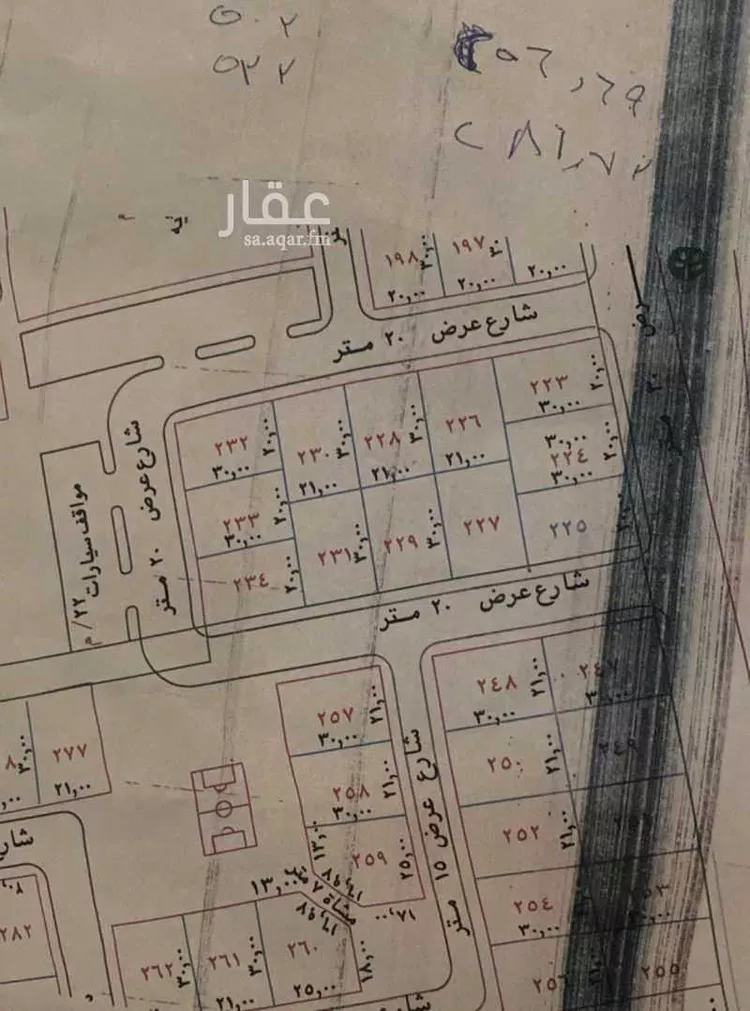 ٥٠٢
٥٣٢
٢٥٦,٦٩
٢٨١,٧٢
عقار
sa.aqar.fm
١٩٨
٣٠,٠٠
١٩٧
٢٠,٠٠
٢٠,٠٠
٢٠,٠٠
شارع عرض ٢٠ متر
٢٢٣
٢٠,٠٠
٣٠,٠٠
٣٠,٠٠
٢٢٤
٢٠,٠٠
٣٠,٠٠
٢٢٥
٢٢٦
٢١,٠٠
٢٢٧
٢٢٨
٣٠,٠٠
٢١,٠٠
٢٢٩
٣٠,٠٠
٢٣٠
٣٠,٠٠
٢١,٠٠
٢٣١
٣٠,٠٠
٢٣٢
٢٠,٠٠
٣٠,٠٠
٢٣٣
٢٠,٠٠
٣٠,٠٠
٢٣٤
٢٠,٠٠
شارع عرض ٢٠ متر
مواقف سيارات
م / ٢٢
شارع عرض ٢٠ متر
٢٤٧
٣٠,٠٠
٢٤٨
٢١,٠٠
٣٠,٠٠
٢٤٩
٢٥٠
٢١,٠٠
٢٥٢
٢١,٠٠
٢٥٣
٣٠,٠٠
٢٥٤
٣٠,٠٠
٢٥٥
٢١,٠٠
٢٥٧
٢١,٠٠
٣٠,٠٠
٢٥٨
٢١,٠٠
٣٠,٠٠
٢٥٩
١٣,٠٠
٢٥,٠٠
شارع عرض ١٥ متر
١٣,٠٠
٢٦٠
١٨,٠٠
٢٥,٠٠
٢٦١
٣٠,٠٠
٢١,٠٠
٢٦٢
٣٠,٠٠
٢٧٧
٣٠,٠٠
٢١,٠٠
٢٨٢